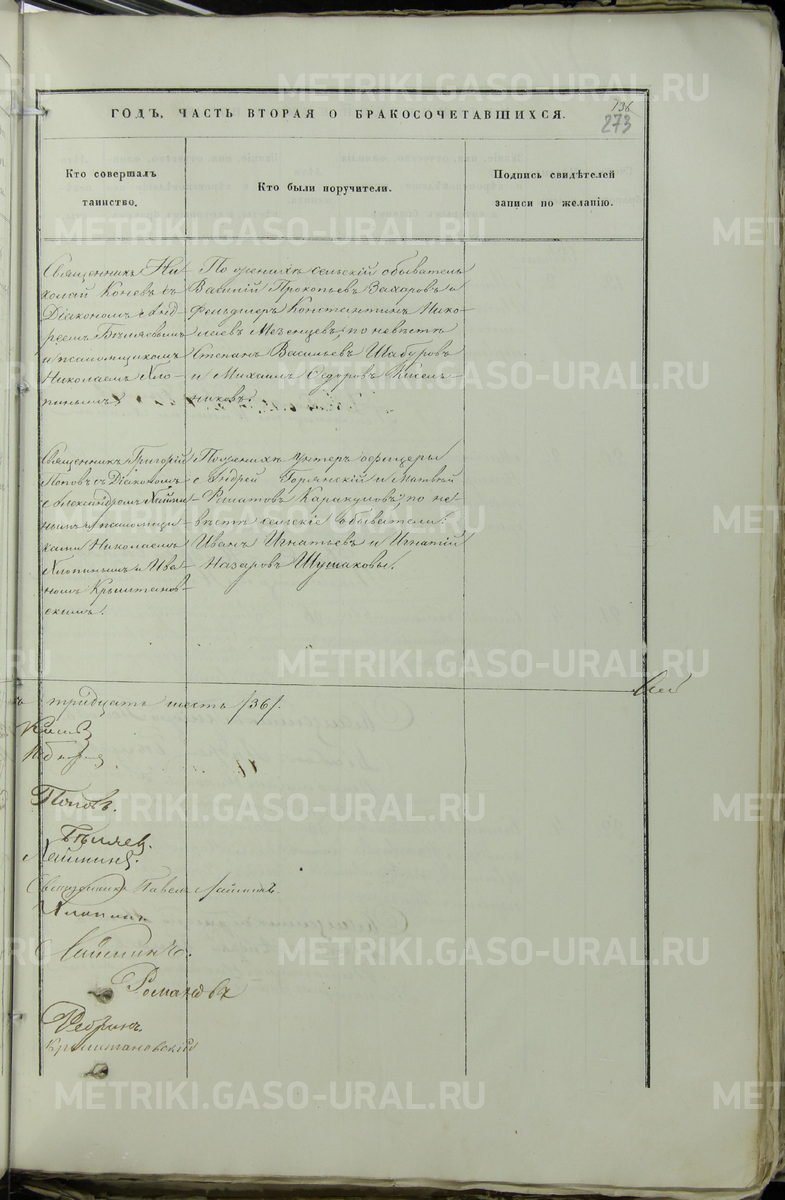 136
273
ГОДЪ, ЧАСТЬ ВТОРАЯ О БРАКОСОЧЕТАВШИХСЯ.
Кто совершалъ
таинство.
Кто были поручители.
Подпись свидѣтелей
записи по желанію.
Священникъ Ни-
колай Коневъ съ
Діакономъ Анд-
реемъ Бѣляевымъ
и псаломщикомъ
Николаемъ Хло-
пинымъ
По женихѣ сельскій обыватель
Василій Прокопьевъ Захаровъ и
Фельдшеръ Константинъ Нико-
лаевъ Мезенцевъ; по невѣстѣ
Степанъ Васильевъ Шабуровъ
и Михаилъ Сидоровъ
никовъ.
Священникъ Григорій
Поповъ съ Діакономъ
Александромъ
нымъ и псаломщи-
ками Николаемъ
Хлопинымъ и Ива-
номъ Крыштанов-
скимъ.
По женихѣ унтеръ офицеры
Андрей Горянскій и Матвей
Каракуловъ; по не-
вѣстѣ сельскіе обыватели:
Иванъ Игнатьевъ и Игнатій
Назаровъ Шушаковы.
тридцать шесть /36/.
Поповъ.
Бѣляев.
Священникъ Павелъ
Хлопинъ
Романовъ
Ребринъ.
Крыштановскій
METRIKI.GASO-URAL.RU